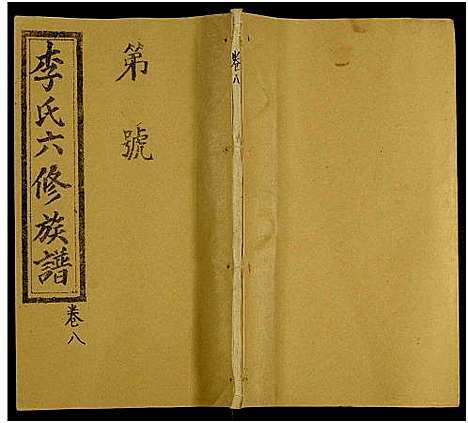 李氏六修族譜
卷八
第號
卷八